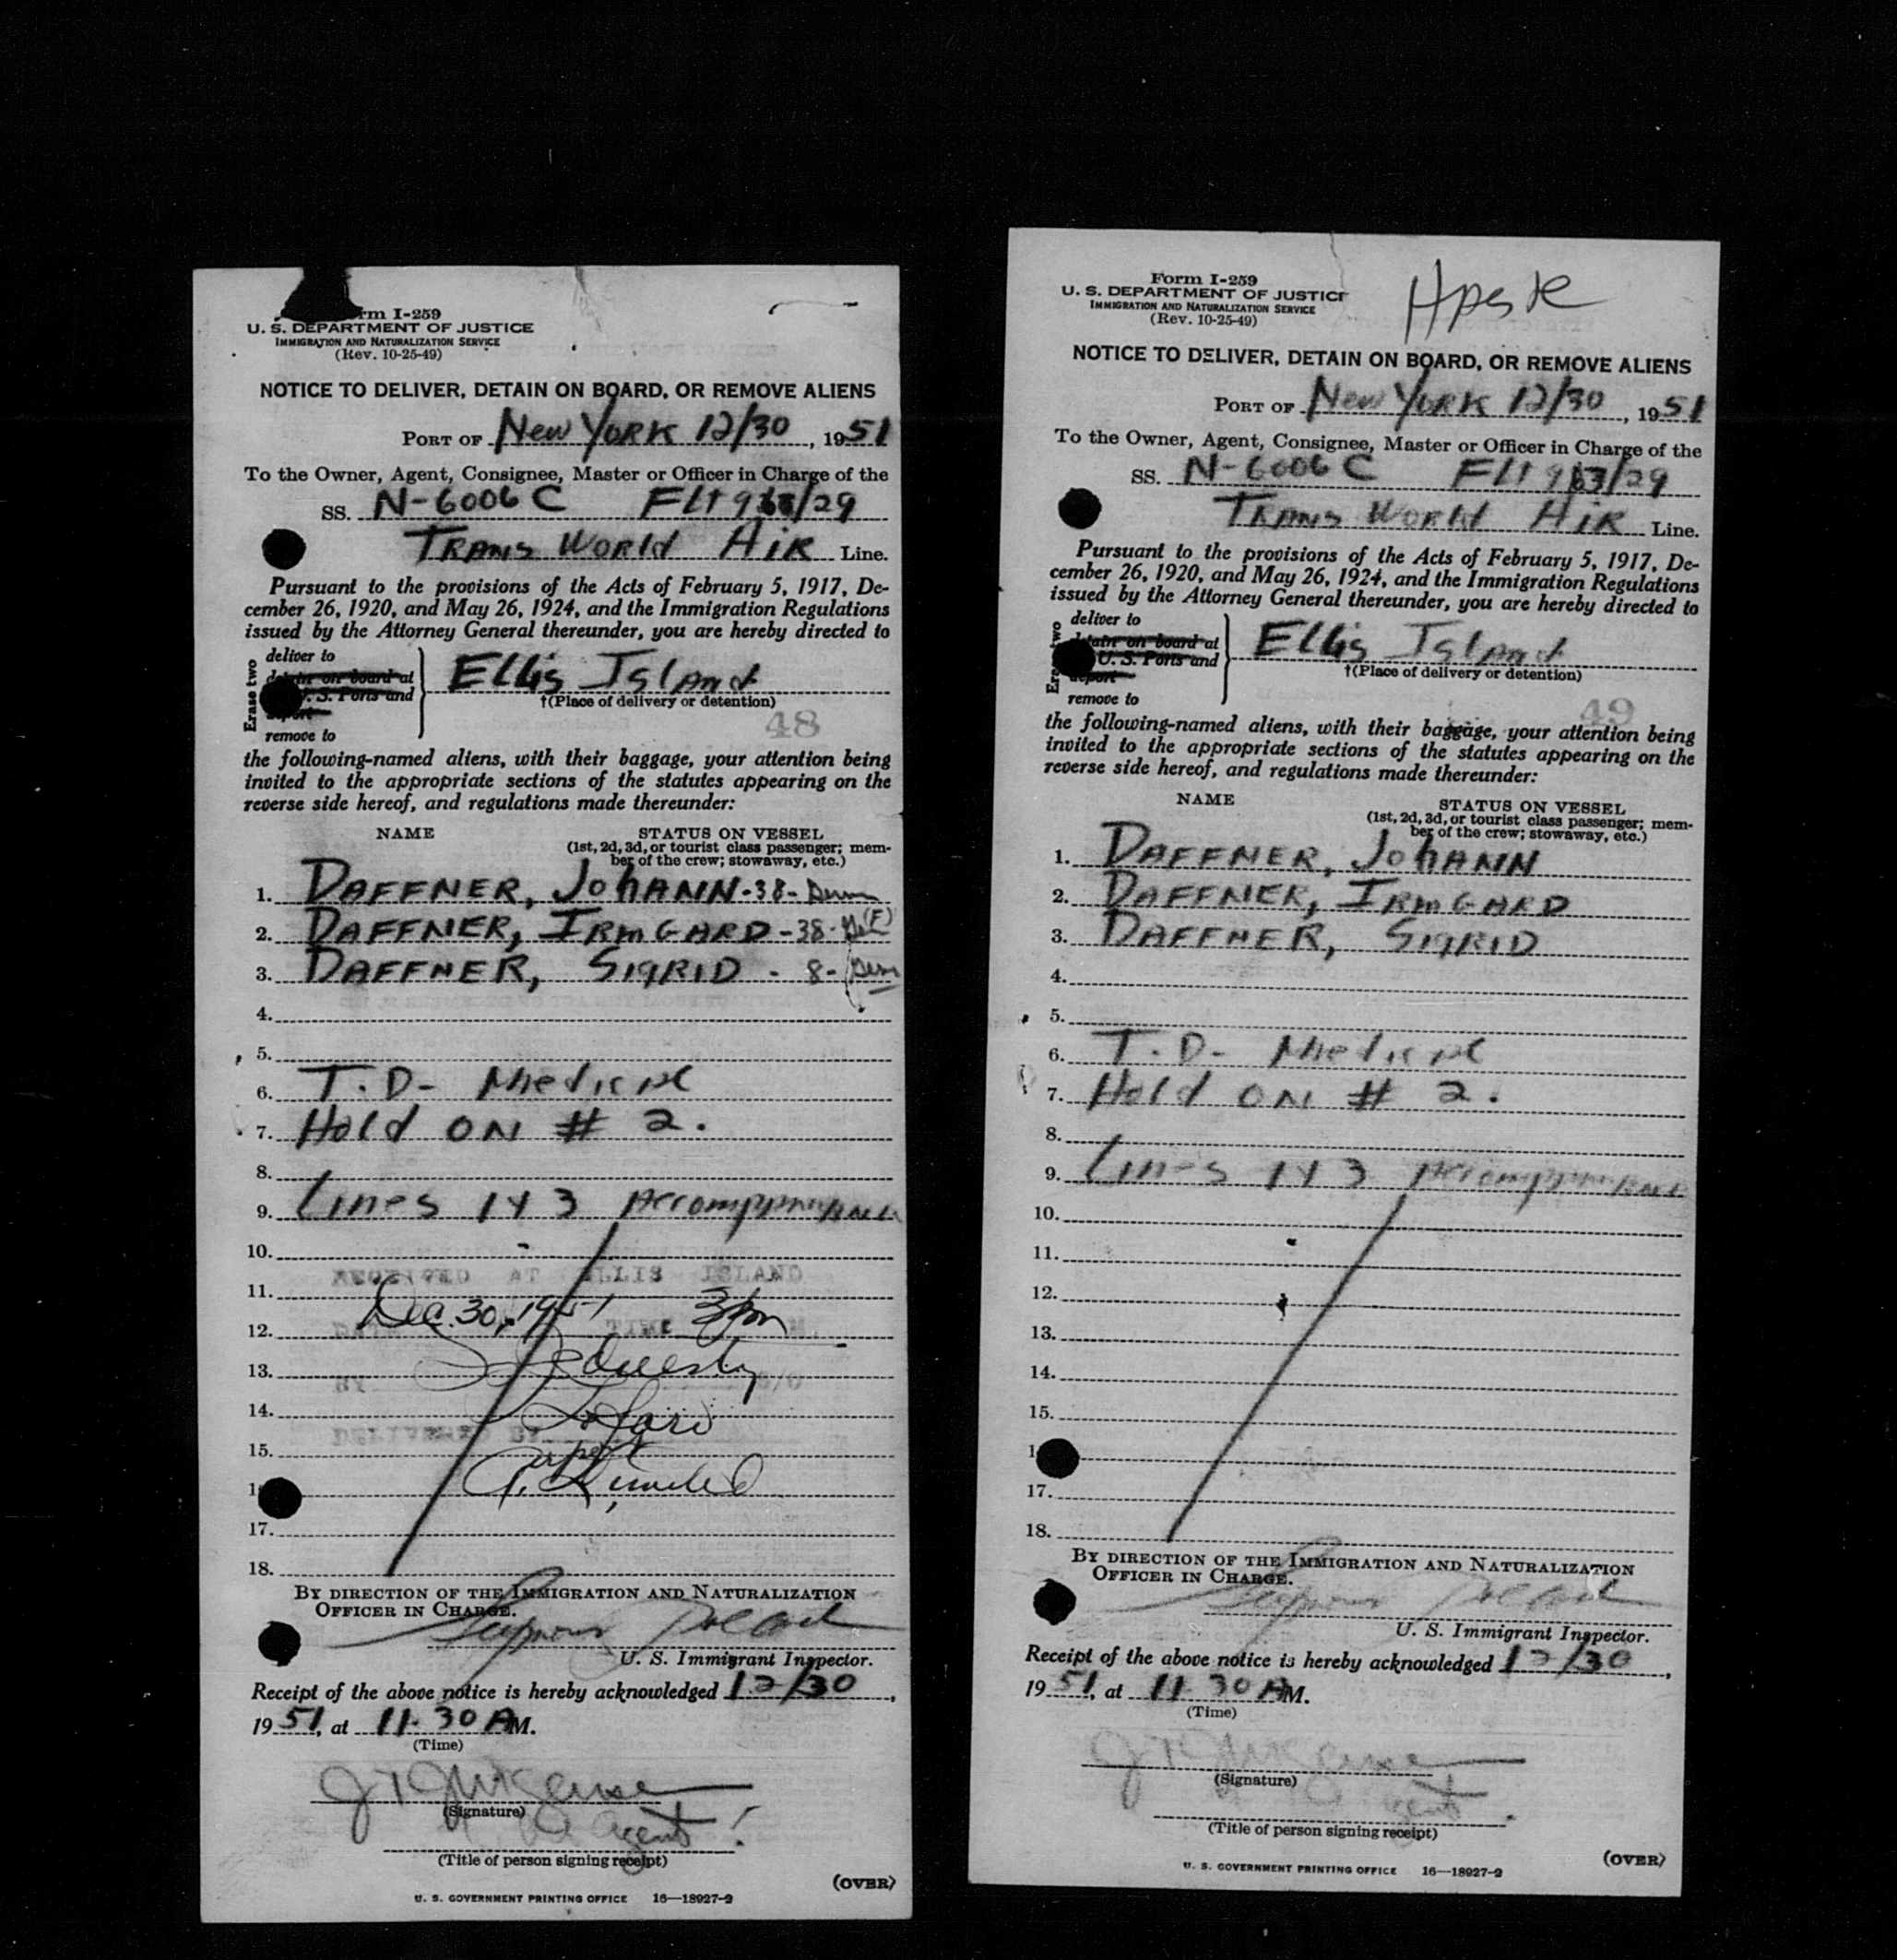 rm I-259
U. S. DEPARTMENT OF JUSTICE
IMMIGRATION AND NATURALIZATION SERVICE
(Rev. 10-25-49)
NOTICE TO DELIVER, DETAIN ON BOARD, OR REMOVE ALIENS
PORT OF New York 12/30, 1951
To the Owner, Agent, Consignee, Master or Officer in Charge of the
SS. N-6006C Flt 963/29
Trans World Air Line.
Pursuant to the provisions of the Acts of February 5, 1917, De-
cember 26, 1920, and May 26, 1924, and the Immigration Regulations
issued by the Attorney General thereunder, you are hereby directed to
Erase two
deliver to
detain on board at
U. S. Ports and
deport
remove to
Ellis Island
†(Place of delivery or detention)
48
the following-named aliens, with their baggage, your attention being
invited to the appropriate sections of the statutes appearing on the
reverse side hereof, and regulations made thereunder:
NAME STATUS ON VESSEL
(1st, 2d, 3d, or tourist class passenger; mem-
ber of the crew; stowaway, etc.)
1. DAFFNER, JOHANN-38-
2. DAFFNER, IRMGARD-38- (F)
3. DAFFNER, SIGRID - 8-
4.
5.
6. T.D- Medical
7. Hold ON # 2.
8.
9. Lines 1 Y 3 Accompanying
10.
RECEIVED AT ELLIS ISLAND
11.
Dec. 30, 1951 3 pm
12.
DATE TIME M.
13.
BY
14.
DELIVERED BY
15.
17.
18.
BY DIRECTION OF THE IMMIGRATION AND NATURALIZATION
OFFICER IN CHARGE.
Seymour
U. S. Immigrant Inspector.
Receipt of the above notice is hereby acknowledged 12/30,
1951, at 11.30 AM.
(Time)
(Signature)
Agent
(Title of person signing receipt)
(OVER)
U. S. GOVERNMENT PRINTING OFFICE 16—18927-2
Form I-259
U. S. DEPARTMENT OF JUSTICE
IMMIGRATION AND NATURALIZATION SERVICE
(Rev. 10-25-49)
NOTICE TO DELIVER, DETAIN ON BOARD, OR REMOVE ALIENS
PORT OF New York 12/30, 1951
To the Owner, Agent, Consignee, Master or Officer in Charge of the
SS. N-6006C Flt 963/29
Trans World Air Line.
Pursuant to the provisions of the Acts of February 5, 1917, De-
cember 26, 1920, and May 26, 1924, and the Immigration Regulations
issued by the Attorney General thereunder, you are hereby directed to
Erase two
deliver to
detain on board at
U. S. Ports and
deport
remove to
Ellis Island
†(Place of delivery or detention)
49
the following-named aliens, with their baggage, your attention being
invited to the appropriate sections of the statutes appearing on the
reverse side hereof, and regulations made thereunder:
NAME STATUS ON VESSEL
(1st, 2d, 3d, or tourist class passenger; mem-
ber of the crew; stowaway, etc.)
1. DAFFNER, JOHANN
2. DAFFNER, IRMGARD
3. DAFFNER, SIGRID
4.
5.
6. T.D- Medical
7. Hold ON # 2.
8.
9. Lines 1 Y 3 Accompanying
10.
11.
12.
13.
14.
15.
17.
18.
BY DIRECTION OF THE IMMIGRATION AND NATURALIZATION
OFFICER IN CHARGE.
Seymour
U. S. Immigrant Inspector.
Receipt of the above notice is hereby acknowledged 12/30,
1951, at 11 30 AM.
(Time)
(Signature)
Agent
(Title of person signing receipt)
(OVER)
U. S. GOVERNMENT PRINTING OFFICE 16—18927-2